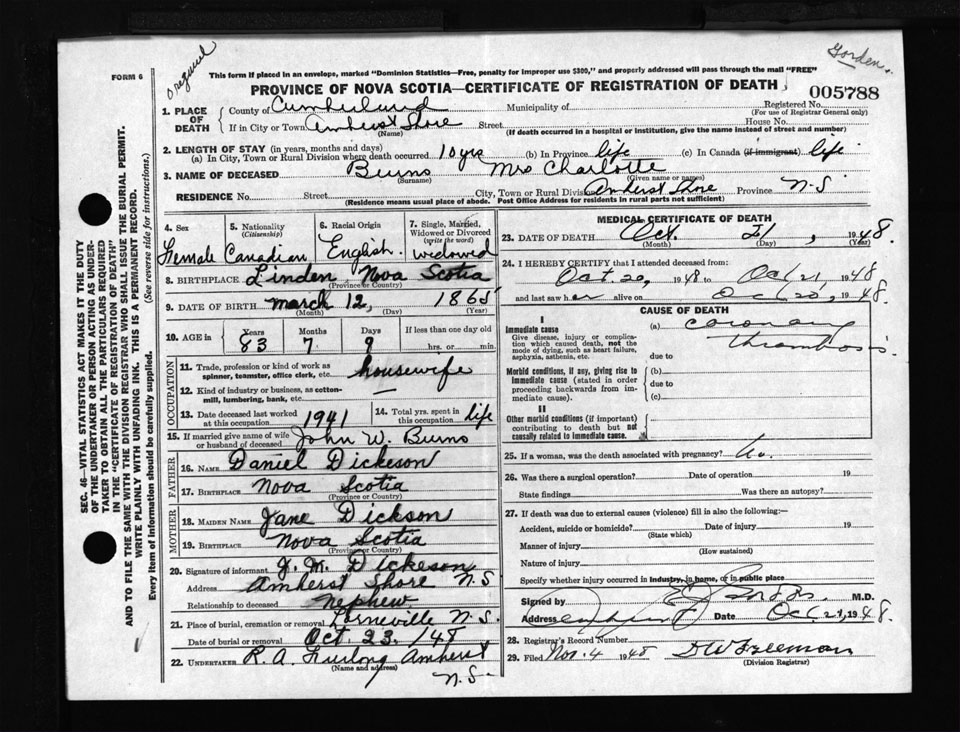 Gorden.
FORM 6
This form if placed in an envelope, marked "Dominion Statistics—Free, penalty for improper use $300," and properly addressed will pass through the mail "FREE"
PROVINCE OF NOVA SCOTIA—CERTIFICATE OF REGISTRATION OF DEATH
005788
1. PLACE OF DEATH County of Cumberland Municipality of Registered No. (For use of Registrar General only)
If in City or Town Amherst Shore (Name) Street House No.
(If death occurred in a hospital or institution, give the name instead of street and number)
2. LENGTH OF STAY (in years, months and days)
(a) In City, Town or Rural Division where death occurred 10 yrs (b) In Province life (c) In Canada (if immigrant) life
3. NAME OF DECEASED Burns (Surname) Mrs Charlotte (Given name or names)
RESIDENCE No. Street City, Town or Rural Division Amherst Shore Province N.S
(Residence means usual place of abode. Post Office Address for residents in rural parts not sufficient)
4. Sex Female
5. Nationality (Citizenship) Canadian
6. Racial Origin English.
7. Single, Married, Widowed or Divorced (write the word) widowed
8. BIRTHPLACE Linden, Nova Scotia (Province or Country)
9. DATE OF BIRTH March 12, 1865 (Month) (Day) (Year)
10. AGE in Years 83 Months 7 Days 9 If less than one day old hrs. or min.
OCCUPATION
11. Trade, profession or kind of work as spinner, teamster, office clerk, etc. housewife
12. Kind of industry or business, as cotton-mill, lumbering, bank, etc. —
13. Date deceased last worked at this occupation 1941
14. Total yrs. spent in this occupation life
15. If married give name of wife or husband of deceased John W. Burns
FATHER
16. NAME Daniel Dickeson
17. BIRTHPLACE Nova Scotia (Province or Country)
MOTHER
18. MAIDEN NAME Jane Dickson
19. BIRTHPLACE Nova Scotia (Province or Country)
20. Signature of informant J. M. Dickeson
Address Amherst Shore N.S
Relationship to deceased nephew
21. Place of burial, cremation or removal Lorneville N.S.
Date of burial or removal Oct. 23. /48
22. UNDERTAKER R. A. Furlong Amherst N.S. (Name and address)
MEDICAL CERTIFICATE OF DEATH
23. DATE OF DEATH Oct. 21, 1948. (Month) (Day) (Year)
24. I HEREBY CERTIFY that I attended deceased from:
Oct. 20, 1948 to Oct 21, 1948
and last saw her alive on Oct 20, 1948.
CAUSE OF DEATH
I
Immediate cause
Give disease, injury or complication which caused death, not the mode of dying, such as heart failure, asphyxia, asthenia, etc.
(a) coronary thrombosis
due to
Morbid conditions, if any, giving rise to immediate cause (stated in order proceeding backwards from immediate cause).
(b)
due to
(c)
II
Other morbid conditions (if important) contributing to death but not causally related to immediate cause.
25. If a woman, was the death associated with pregnancy? No.
26. Was there a surgical operation? Date of operation 19
State findings Was there an autopsy?
27. If death was due to external causes (violence) fill in also the following:—
Accident, suicide or homicide? (State which) Date of injury 19
Manner of injury (How sustained)
Nature of injury
Specify whether injury occurred in industry, in home, or in public place
Signed by M.D.
Address Date Oct 21, 1948.
28. Registrar's Record Number
29. Filed Nov. 4 1948 D W Freeman (Division Registrar)
SEC. 46—VITAL STATISTICS ACT MAKES IT THE DUTY OF THE UNDERTAKER OR PERSON ACTING AS UNDERTAKER TO OBTAIN ALL THE PARTICULARS REQUIRED IN THE "CERTIFICATE OF REGISTRATION OF DEATH" AND TO FILE THE SAME WITH THE DIVISION REGISTRAR WHO SHALL ISSUE THE BURIAL PERMIT.
WRITE PLAINLY WITH UNFADING INK. THIS IS A PERMANENT RECORD.
Every item of information should be carefully supplied. (See reverse side for instructions.)